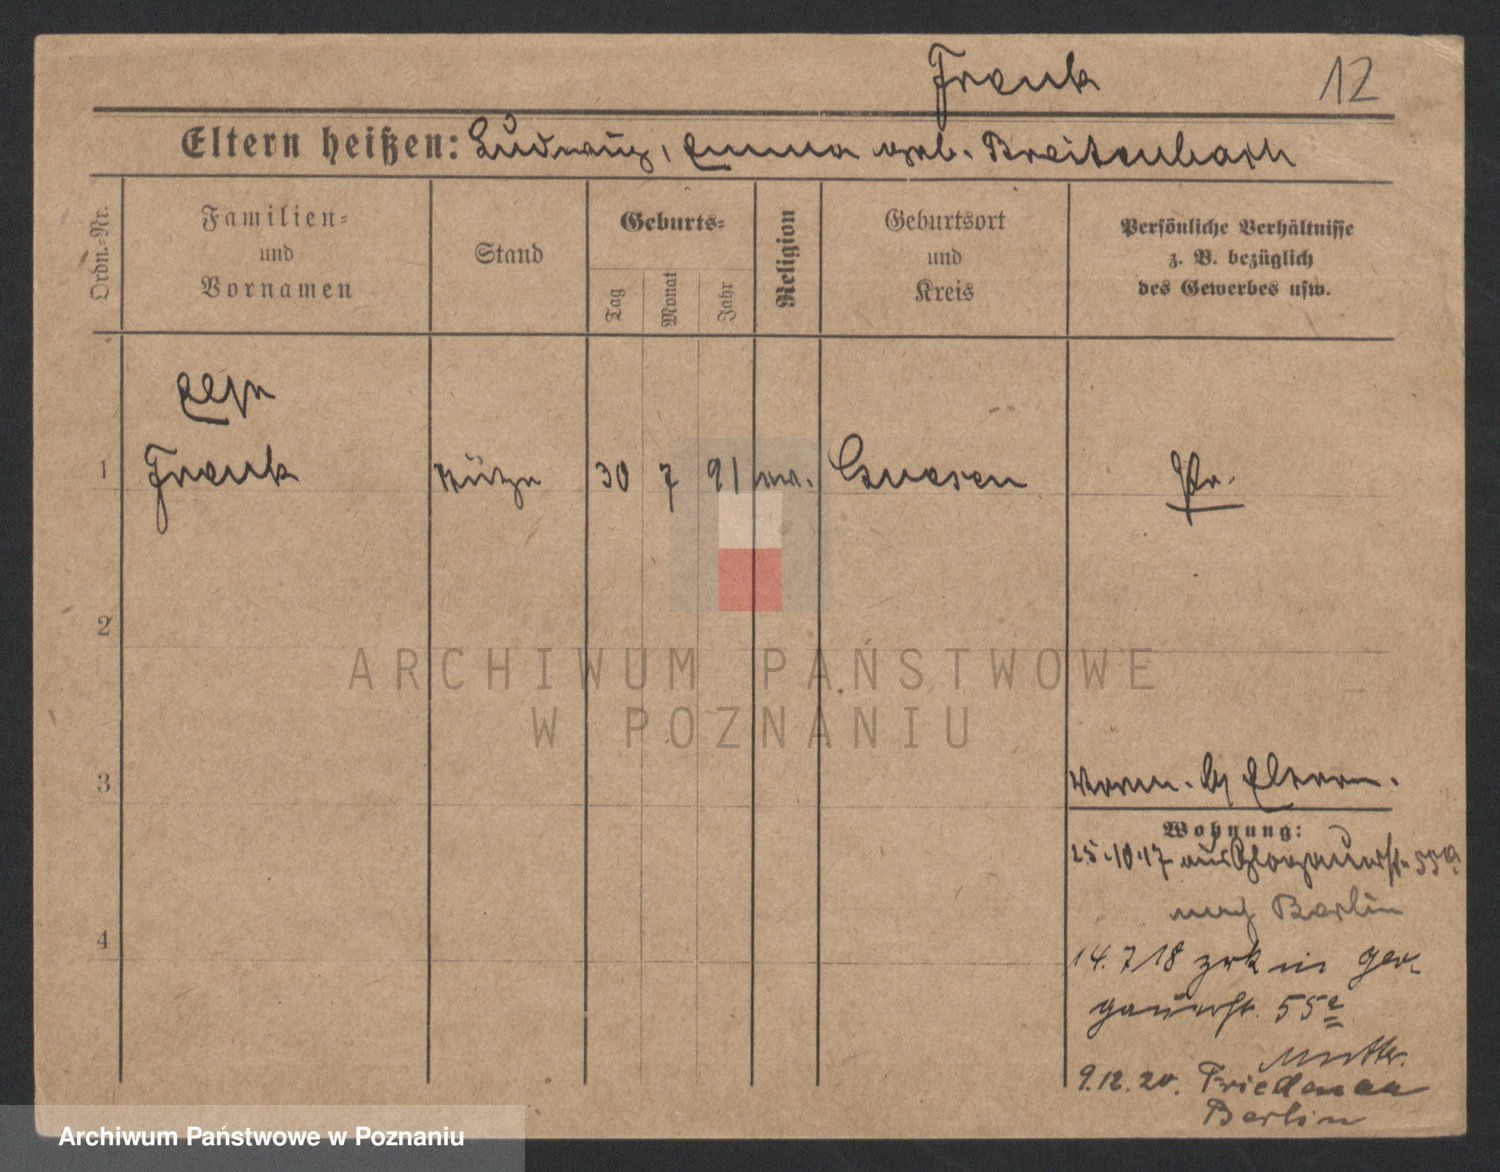 Frank 12
Eltern heißen: Ludwig, Emma geb. Breitenbach
Ordn.-Nr.
Familien-
und
Vornamen
Stand
Geburts-
Tag
Monat
Jahr
Religion
Geburtsort
und
Kreis
Persönliche Verhältnisse
z. B. bezüglich
des Gewerbes usw.
Else
1 Frank Stütze 30 7 91 Gnesen Pr.
2
ARCHIWUM PAŃSTWOWE
W POZNANIU
3
Eltern.
Wohnung:
25.10.17 aus Glogauerst. 55a
nach Berlin
4
14.7.18 zrk in Glo-
gauerst. 55a
Mutter.
9.12.20. Friedenau
Berlin
Archiwum Państwowe w Poznaniu